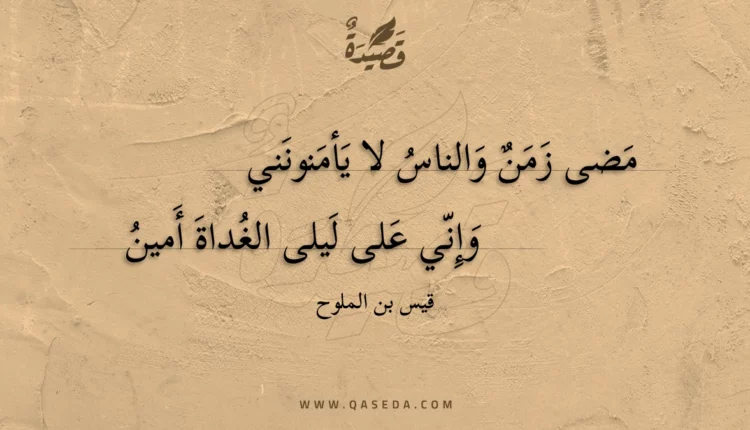 قَصِيدَةٌ
مَضى زَمَنٌ وَالناسُ لا يَأمَنونَني
وَإِنّي عَلى لَيلى الغُداةَ أَمينُ
قيس بن الملوح
WWW.QASEDA.COM